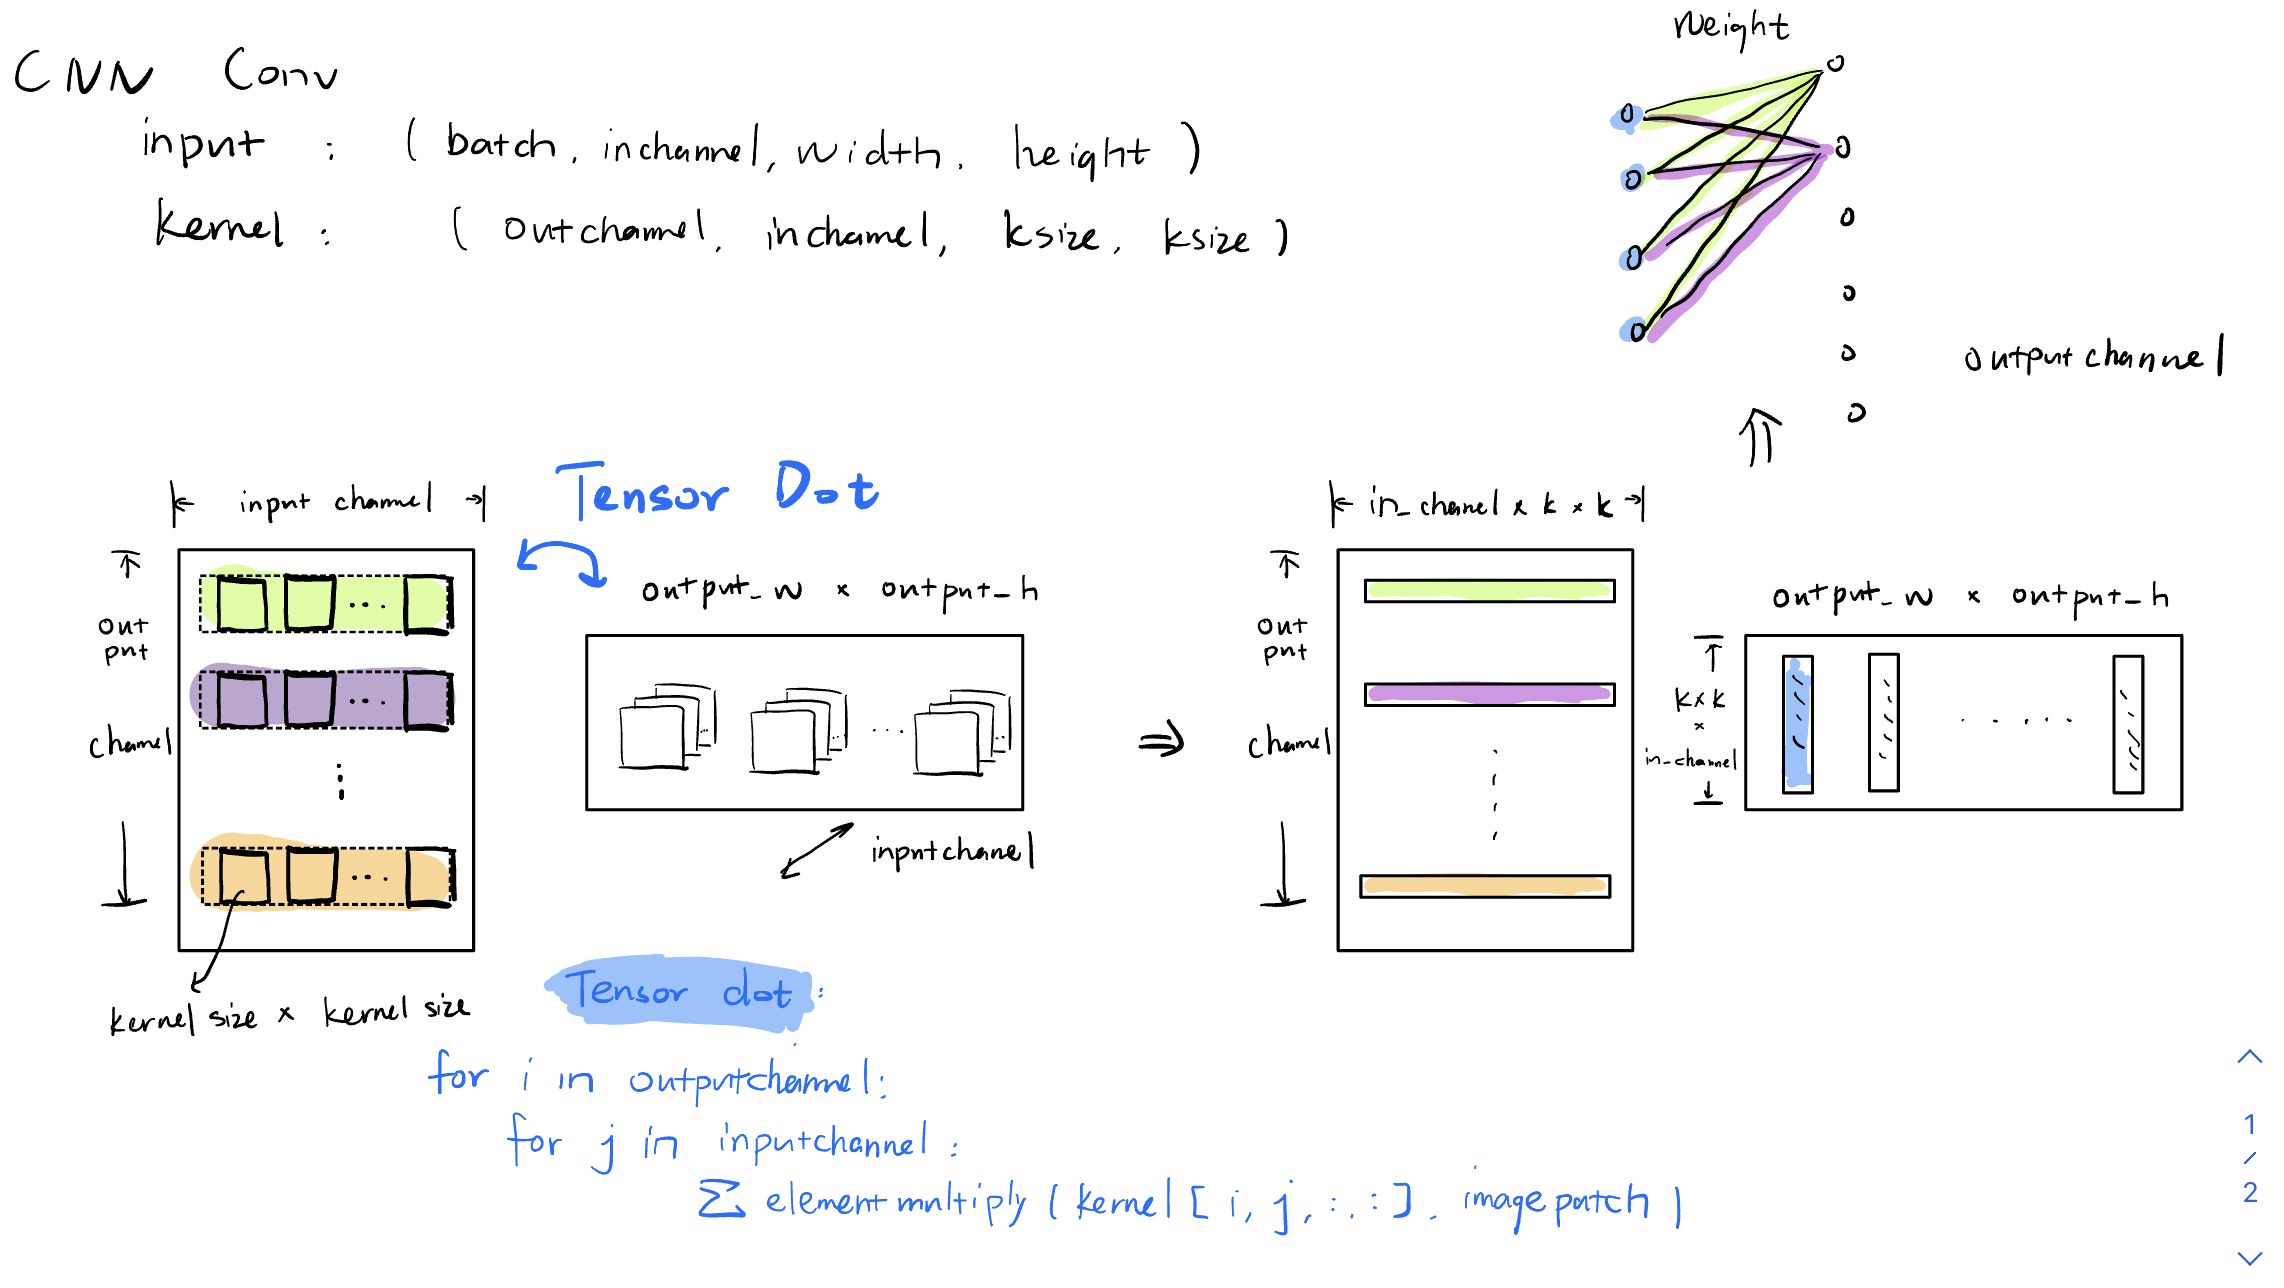 Weight
CNN Conv
input : ( batch, inchannel, width, height )
kernel : ( outchannel, inchannel, ksize, ksize )
outputchannel
Tensor Dot
input channel
output channel
kernel size × kernel size
output_w × output_h
inputchannel
⇒
in_channel × k × k
output channel
output_w × output_h
k×k
×
in_channel
Tensor dot :
for i in outputchannel:
for j in inputchannel :
Σ elementmultiply ( kernel [ i, j, :, : ], imagepatch )
1
/
2